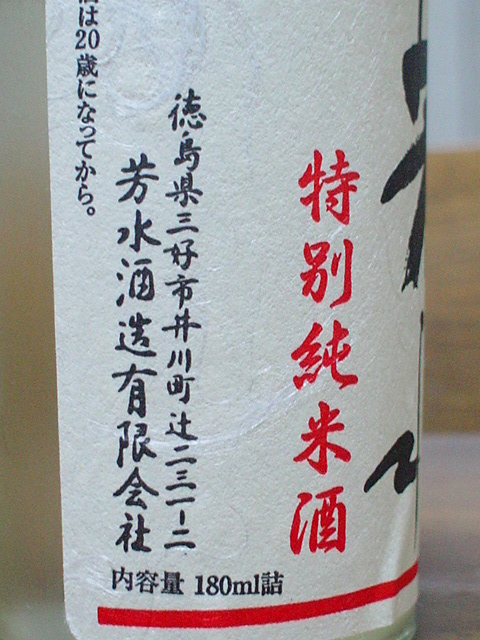 特別純米酒
徳島県三好市井川町辻二三一-二
芳水酒造有限会社
は20歳になってから。
内容量 180ml詰